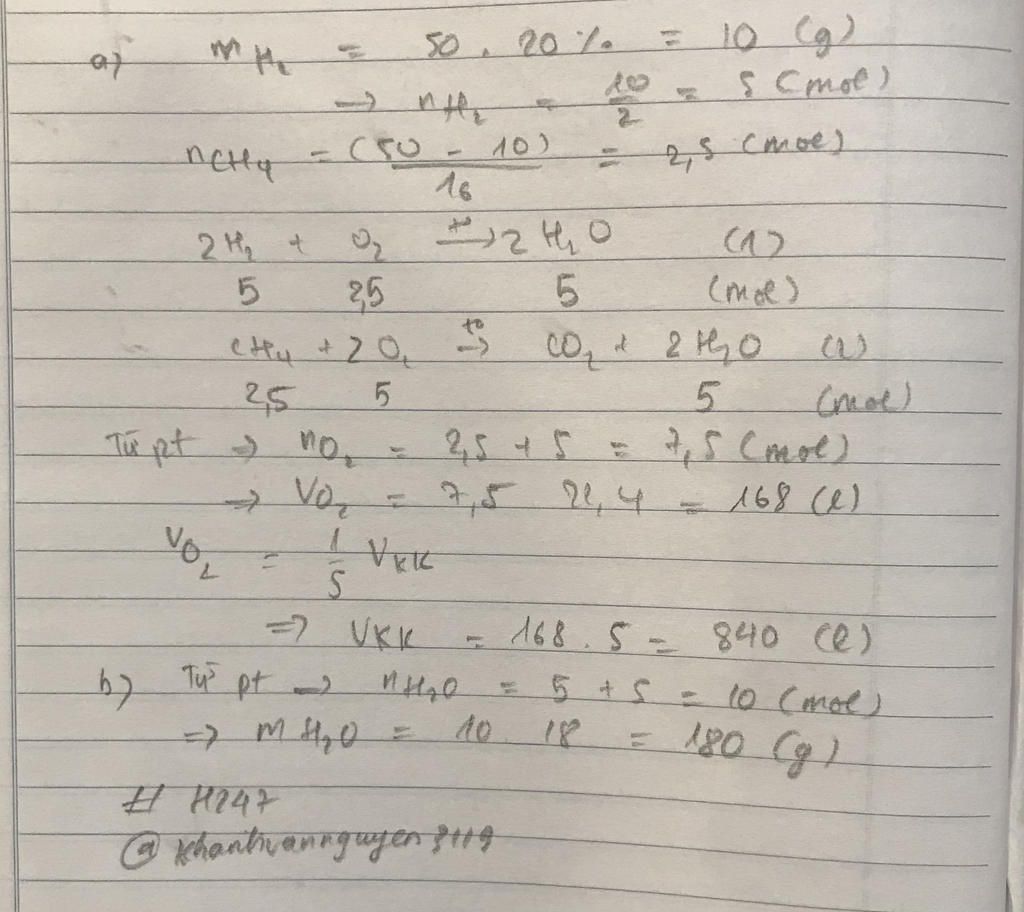 a) mH₂ = 50 . 20% = 10 (g)
→ nH₂ = 10/2 = 5 (mol)
nCH₄ = (50 - 10)/16 = 2,5 (mol)
2H₂ + O₂ t°→ 2H₂O (1)
5 2,5 5 (mol)
CH₄ + 2O₂ t°→ CO₂ + 2H₂O (2)
2,5 5 5 (mol)
Từ pt ⇒ nO₂ = 2,5 + 5 = 7,5 (mol)
⇒ VO₂ = 7,5 22,4 = 168 (l)
VO₂ = 1/5 VKK
⇒ VKK = 168 . 5 = 840 (l)
b) Từ pt → nH₂O = 5 + 5 = 10 (mol)
⇒ mH₂O = 10 18 = 180 (g)
# H247
@khanhvannguyen3119